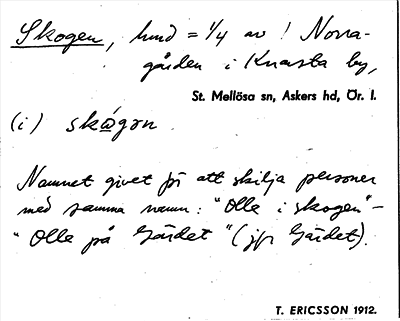 Skogen, hmd = 1/4 av ! Norra-
gården i Knista by,
St. Mellösa sn, Askers hd, Ör. l.
(i) skå̀gən
Namnet givet för att skilja personer
med samma namn: "Olle i skogen" –
"Olle på Gärdet" (jfr Gärdet).
T. ERICSSON 1912.